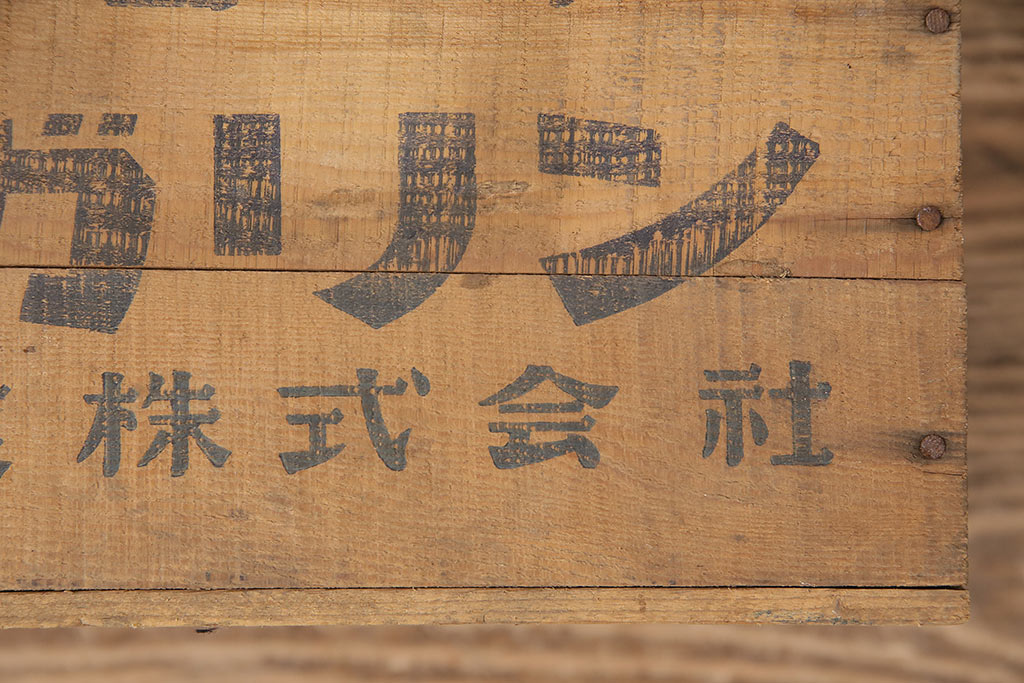 ガリン
株式会社